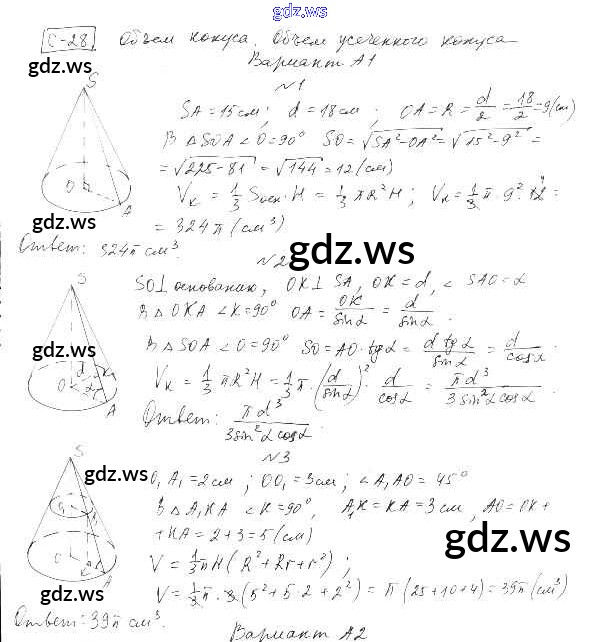 gdz.ws
С-28 Объем конуса. Объем усеченного конуса
Вариант А1
gdz.ws
№1
S
SA = 15 см; d = 18 см; OA = R = d/2 = 18/2 = 9 (см)
В △SOA ∠O = 90° SO = √(SA² - OA²) = √(15² - 9²) =
= √(225 - 81) = √144 = 12 (см)
Vк = 1/3 Sосн·H = 1/3 πR²H; Vк = 1/3 π·9²·12 =
O
A
gdz.ws
= 324π (см³)
Ответ: 324π см³.
gdz.ws
№2
S
SO⊥основанию, OK⊥SA, OK = d, ∠SAO = α
В △OKA ∠K = 90° OA = OK/sinα = d/sinα.
gdz.ws
gdz.ws
В △SOA ∠O = 90° SO = AO·tgα = d tgα/sinα = d/cosα.
d
K
O
α
A
Vк = 1/3 πR²H = 1/3 π·(d/sinα)²·d/cosα = πd³/3sin²α cosα
Ответ: πd³/3sin²α cosα.
gdz.ws
№3
S
gdz.ws
O₁A₁ = 2 см; OO₁ = 3 см; ∠A₁AO = 45°
В △A₁KA ∠K = 90°, A₁K = KA = 3 см, AO = OK +
+ KA = 2 + 3 = 5 (см)
gdz.ws
V = 1/3 πH (R² + Rr + r²);
O
K
A
V = 1/3 π·3 (5² + 5·2 + 2²) = π (25 + 10 + 4) = 39π (см³)
gdz.ws
Ответ: 39π см³.
Вариант А2
gdz.ws